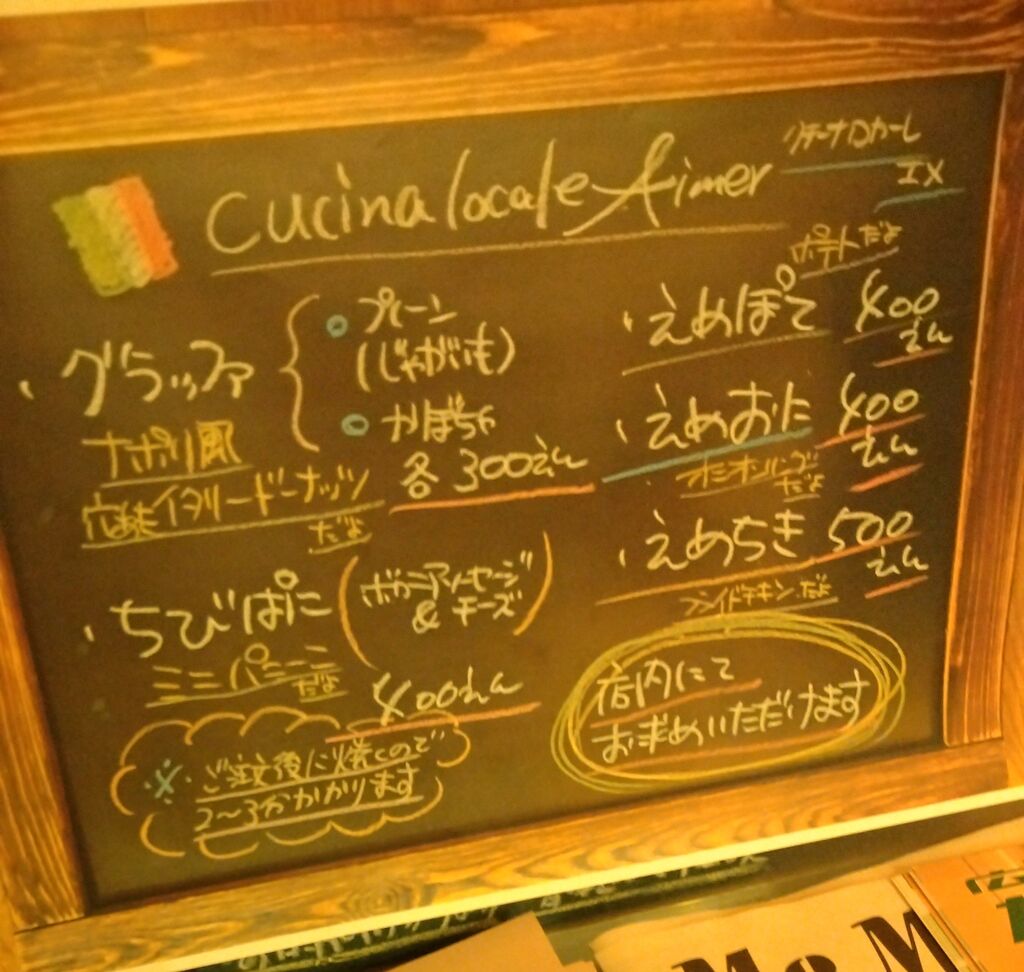 cucina locale Aimer
クチーナロカーレ
エメ
・グラッファ
ナポリ風
穴あきイタリードーナッツ
だよ
プレーン
(じゃがいも)
かぼちゃ
各300えん
・ちびぱに
(ボロニアソーセージ
&チーズ)
ミニパニーニ
だよ
400えん
※ご注文後に焼くので
2〜3分かかります
ポテトだよ
・えめぽて 400
えん
・えめおに 400
えん
オニオンリング
だよ
・えめちき 500
えん
フライドチキンだよ
店内にて
お求めいただけます
Mo M